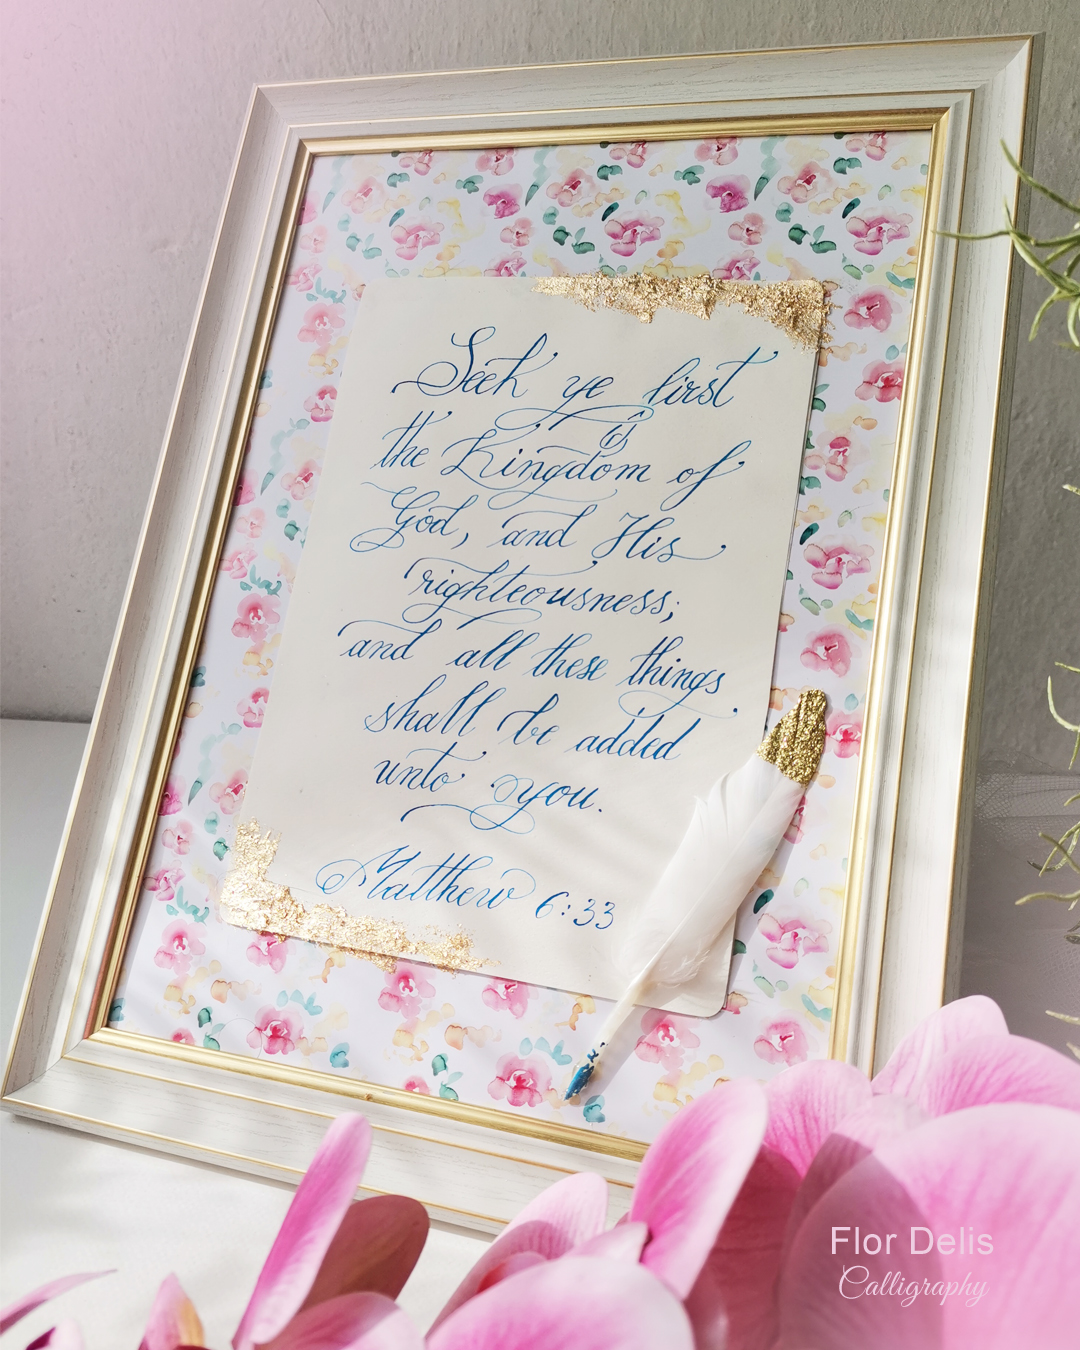 Seek ye first
the Kingdom of
God, and His
righteousness;
and all these things
shall be added
unto you.
Matthew 6:33
Flor Delis
Calligraphy